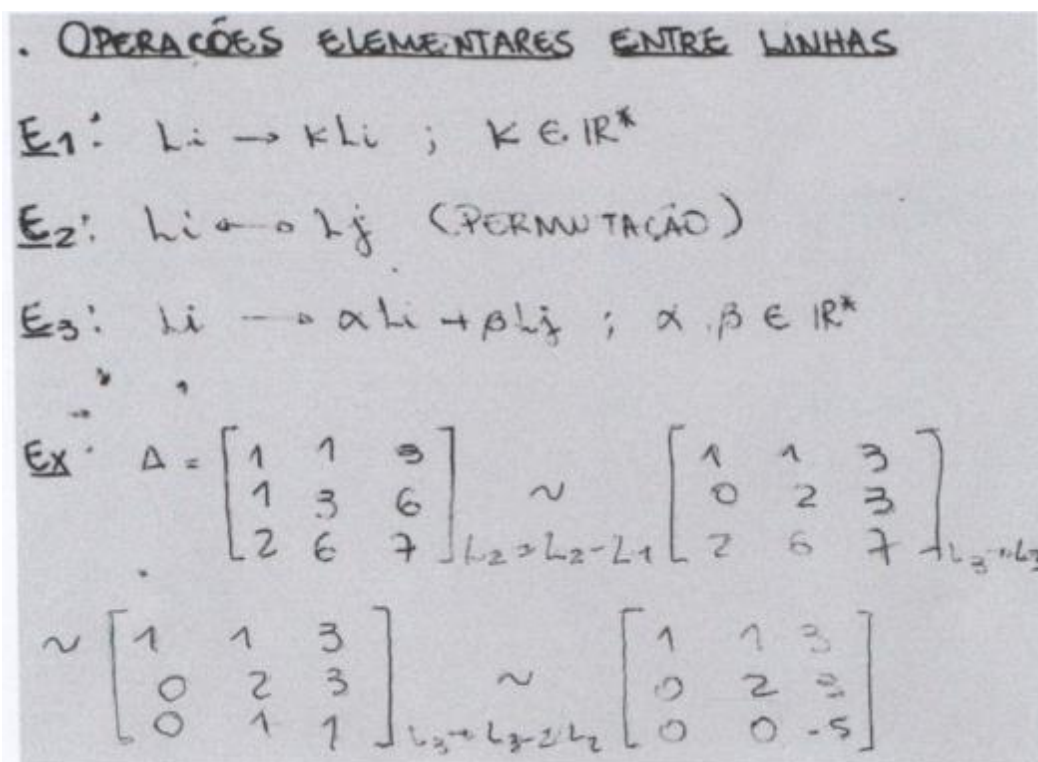 . OPERAÇÕES ELEMENTARES ENTRE LINHAS
E1: Li → kLi ; K ∈ IR*
E2: Li ↔ Lj (PERMUTAÇÃO)
E3: Li → αLi + βLj ; α, β ∈ IR*
Ex: A = [1 1 3
1 3 6
2 6 7] L2→L2-L1 ~ [1 1 3
0 2 3
2 6 7] L3→L3
~ [1 1 3
0 2 3
0 1 1] L3→L3-2L2 ~ [1 1 3
0 2 3
0 0 -5]